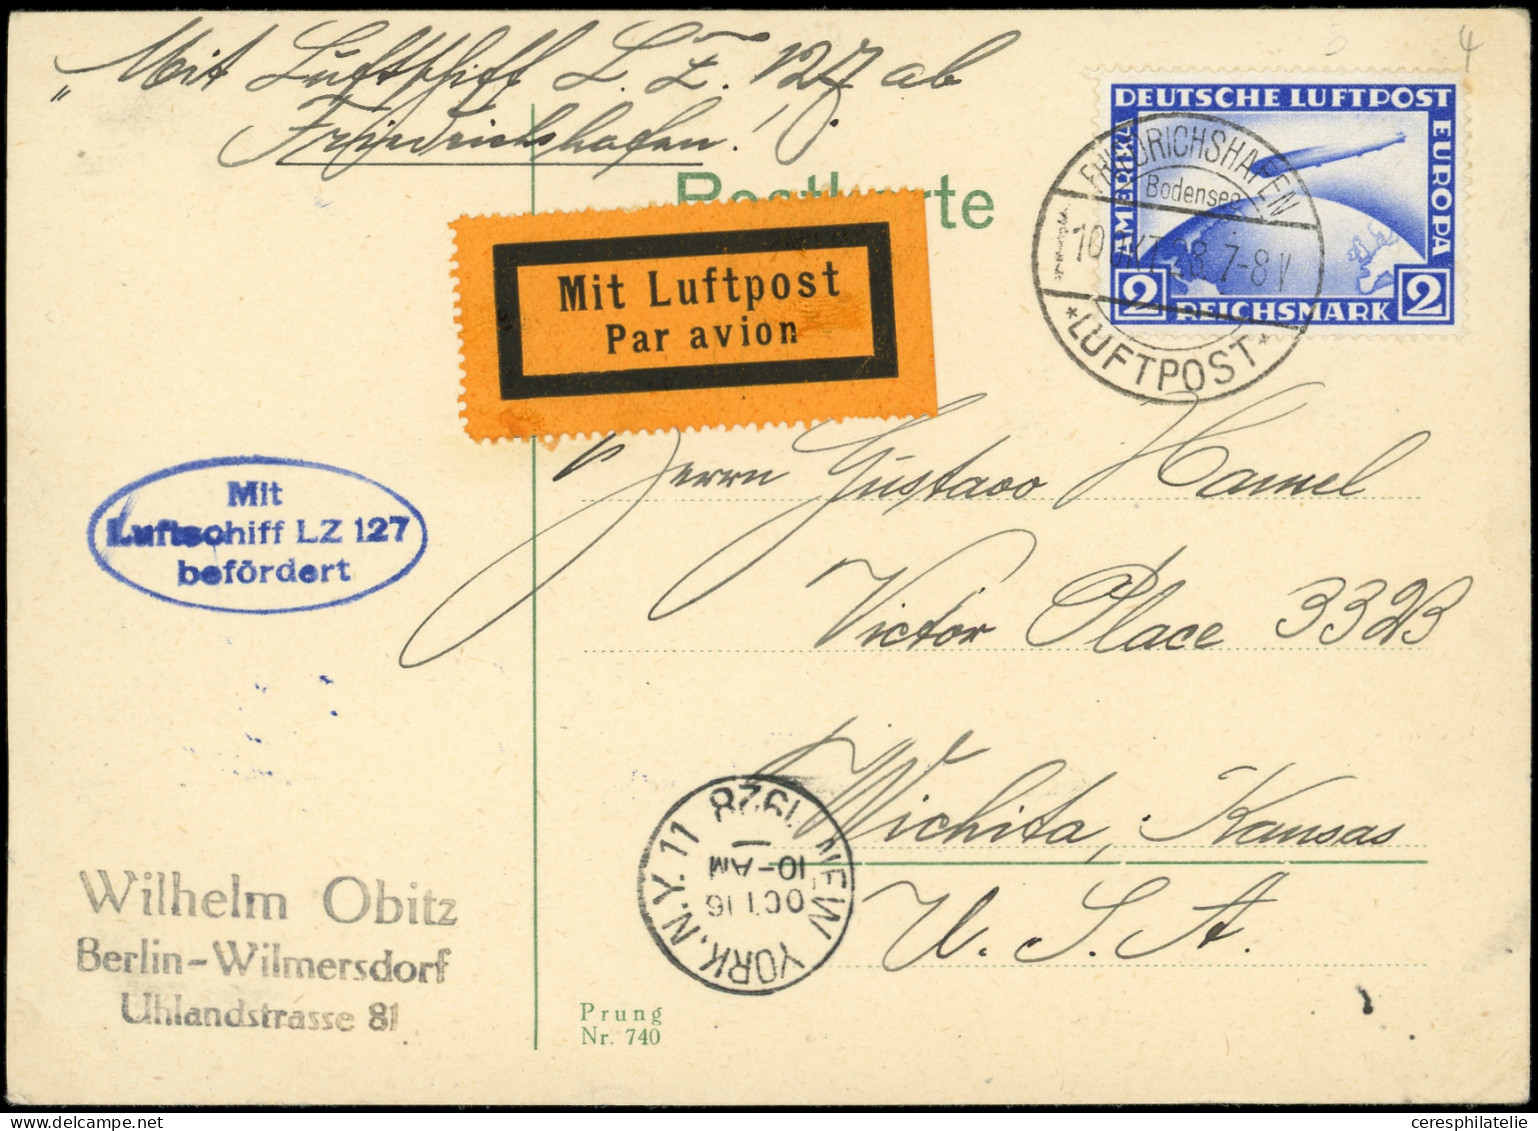 „Mit Luftschiff L. Z. 127 ab
Friedrichshafen!
4
Postkarte
DEUTSCHE LUFTPOST
AMERIKA
EUROPA
2 REICHSMARK 2
FRIEDRICHSHAFEN
Bodensee
10 OKT 28. 7-8 V
* LUFTPOST *
Mit Luftpost
Par avion
Herrn Gustavo Hamel
Victor Place 332B
Wichita, Kansas
U. S. A.
Mit
Luftschiff LZ 127
befördert
NEW YORK, N.Y. 11 1928
OCT 16
10-AM
Wilhelm Obitz
Berlin-Wilmersdorf
Uhlandstrasse 81
Prung
Nr. 740
ceresphilatelie.com